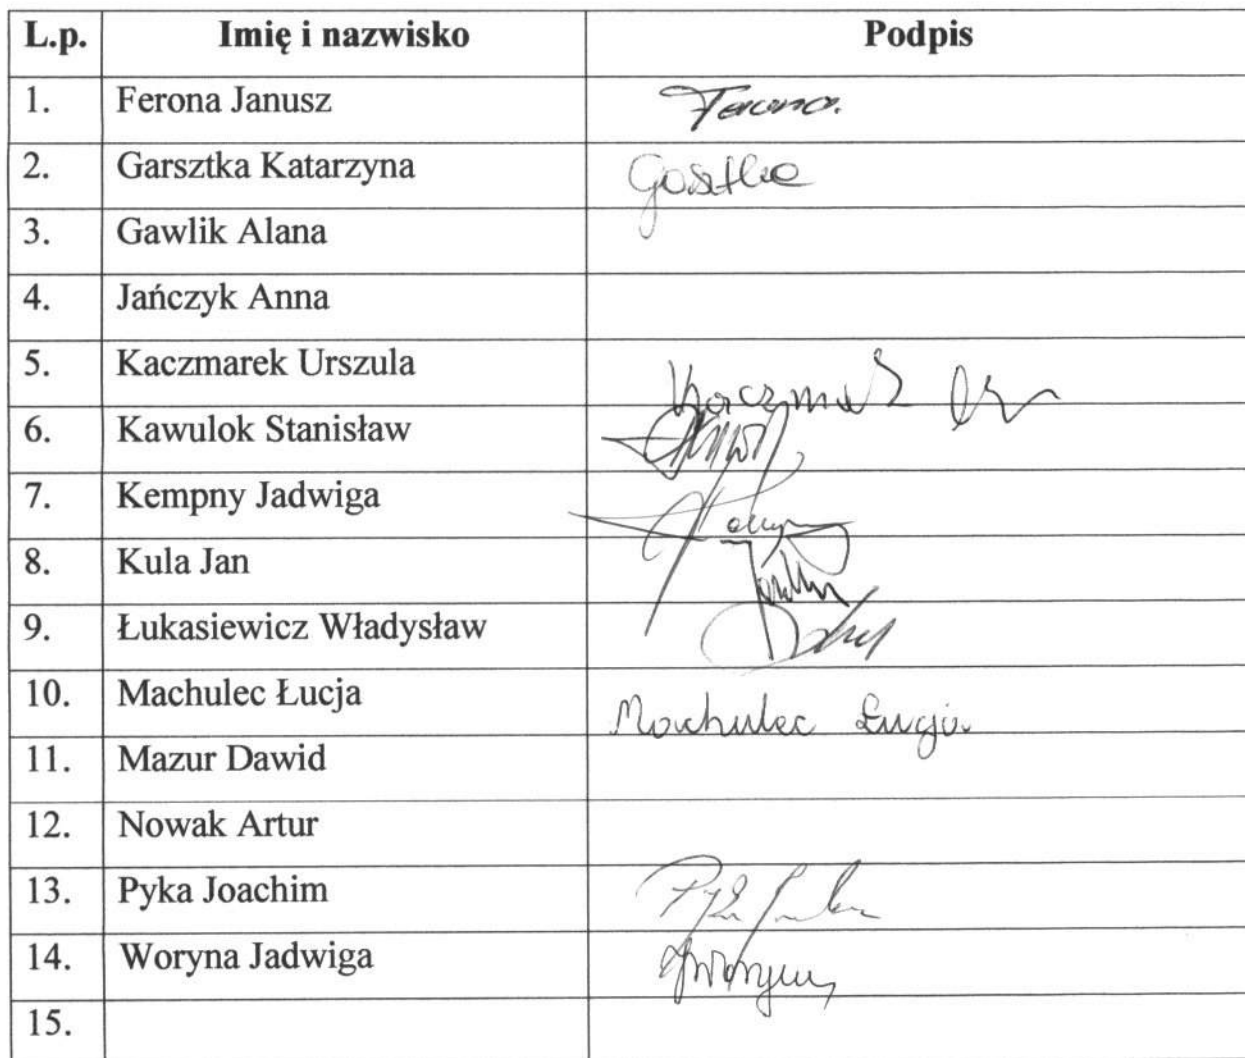 L.p. Imię i nazwisko Podpis
1. Ferona Janusz Ferona
2. Garsztka Katarzyna
3. Gawlik Alana
4. Jańczyk Anna
5. Kaczmarek Urszula
6. Kawulok Stanisław
7. Kempny Jadwiga
8. Kula Jan
9. Łukasiewicz Władysław
10. Machulec Łucja Machulec Łucja
11. Mazur Dawid
12. Nowak Artur
13. Pyka Joachim
14. Woryna Jadwiga
15.